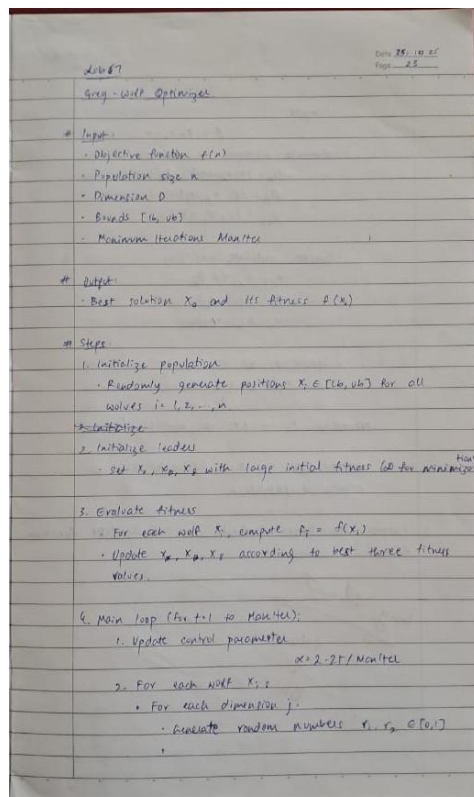 Date 25, 10 25
Page 25
Lab 7
Grey-Wolf Optimizer
# Input:
· Objective function f(x)
· Population size n
· Dimension D
· Bounds [lb, ub]
- Maximum Iterations MaxIter
# Output:
· Best solution Xα and its fitness f(xα)
# Steps
1. Initialize population
· Randomly generate positions Xi ∈ [lb, ub] for all
wolves i = 1, 2, ..., n
2. Initialize
2. Initialize leaders
· set Xα, Xβ, Xδ with large initial fitness (∞ for minimization
3. Evaluate fitness
· For each wolf Xi, compute Fi = f(xi)
· Update Xα, Xβ, Xδ according to best three fitness
values.
4. Main loop (for t=1 to MaxIter):
1. Update control parameter
α = 2 - 2t / MaxIter
2. For each wolf Xi:
· For each dimension j.
· Generate random numbers r1, r2 ∈ [0,1]